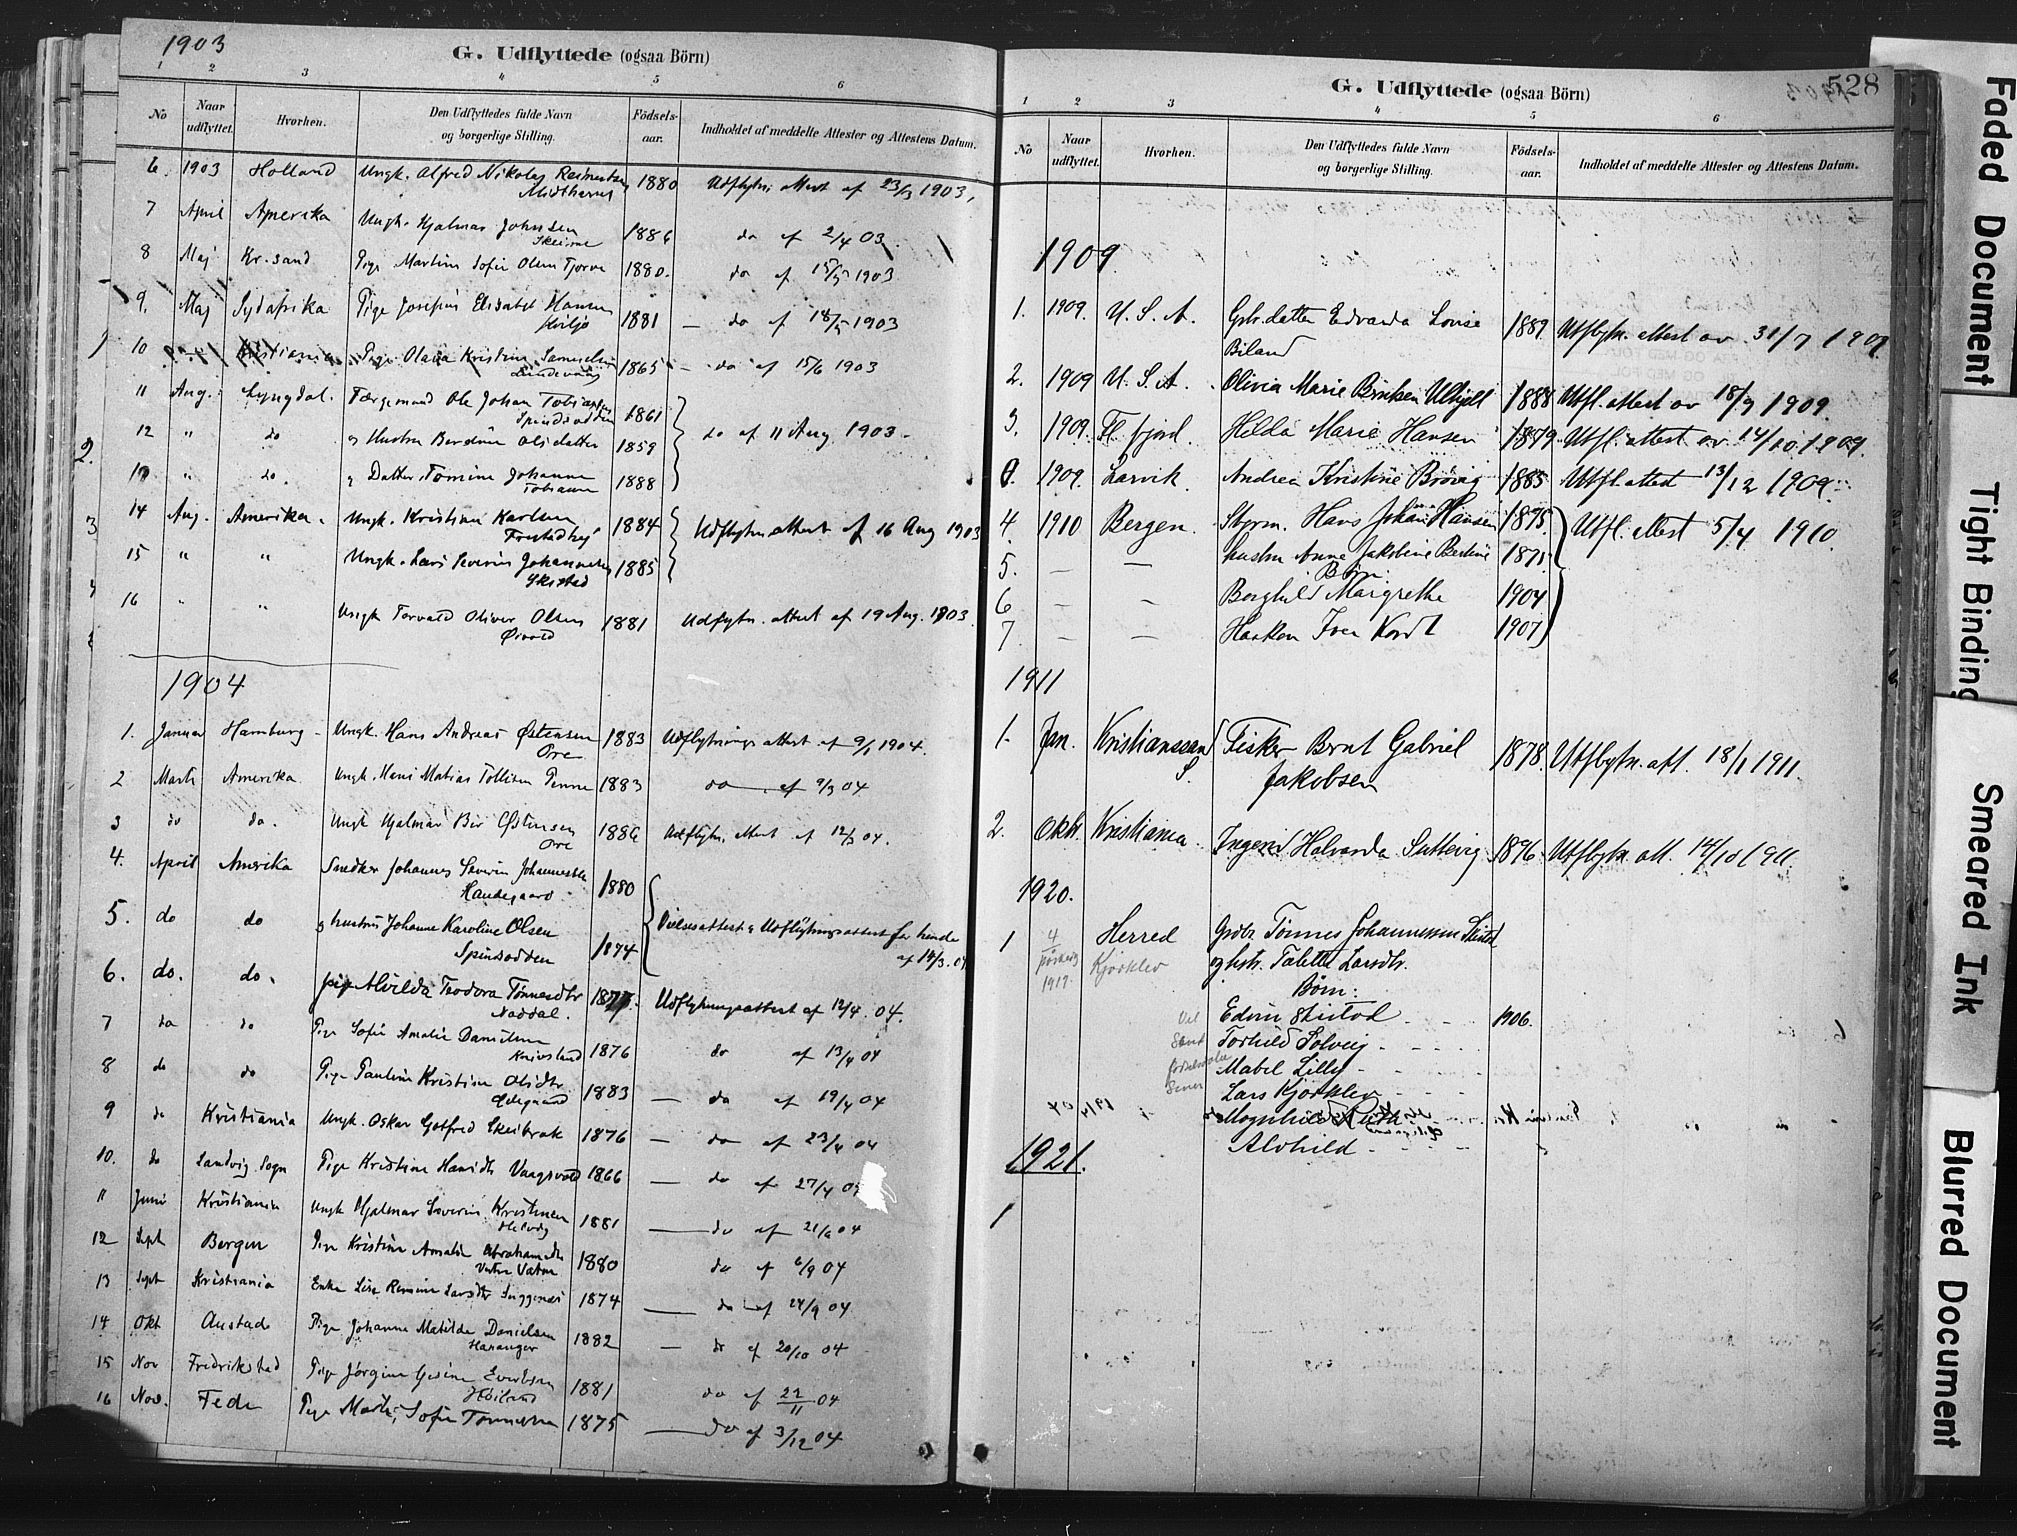 1903
G. Udflyttede (ogsaa Börn)
1 2 3 4 5 6
No Naar udflyttet. Hvorhen. Den Udflyttedes fulde Navn og borgerlige Stilling. Födsels-aar. Indholdet af meddelte Attester og Attestens Datum.
6. 1903 Holland Ungk. Alfred Nikolay 1880 Udflytn. attest af 23/3 1903,
7 April Amerika Ungk. Hjalmar Johnsen 1886 do af 2/4 03.
8 Maj Kr.sand Pige Martine Sofie Olsen Tjorve 1880. do af 15/5 1903
9. Maj Sydafrika Pige Josefine Elisabet Hansen 1881 — do af 18/5 1903
Kviljo
10 Kristiania Pige Olava Kristine Samuelsen 1865 — do af 15/6 1903
11 Aug. Lyngdal. Færgemand Ole Johan Tobiassen 1861
Spindsodden
12 " do og Hustru Berdine Olsdatter 1859 do af 11 Aug. 1903.
13 " do. og Datter Tomine Johanne 1888
14 Aug. Amerika. Ungk. Kristian Karlsen 1884 Udflytn. attest af 16 Aug 1903
15 " " Ungk. Lars Severin Johannesen 1885
Skistad
16 " " Ungk Torvald Oliver Olsen 1881 Udflytn. attest af 19 Aug. 1903.
1904
1. Januar Hamburg Ungk. Hans Andreas Østensen 1883 Udflytnings attest af 9/1 1904.
Ore
2 Marts Amerika Ungk. Hans Matias Tollisen Penne 1883 do af 9/3 04
3 do do. Ungk Hjalmar Østensen 1886 Udflytn. attest af 12/3 04.
Ore
4. April Amerika Snedker Johannes Severin Johannessen 1880
Haudegaard
5. do do og hustru Johanne Karoline Olsen 1874 Vielsesattest & Udflytningsattest for hende
Spindsodden af 14/3.04
6. do. do. pige Alvilda Teodora Tønnesdtr 1877. Udflytningsattest af 12/4. 04.
Naddal.
7 do do Pige Sofie Amalie Danielsen 1876 do af 13/4 04
Knivsland
8 do do Pige Pauline Kristine Olsdtr. 1883 — do af 19/4 04
Ødegaard
9 do Kristiania Ungk. Oskar Gotfred Skeibrok 1876 — do af 23/4 04
10. do Landvig Sogn Pige Kristine Hansdtr Vaagsvold 1866 — do af 27/4 04
11 Juni Kristiania Ungk Hjalmar Severin Kristensen 1881 — do af 21/6 04
12 Sept Bergen Pige Kristine Amalie Abrahamsdtr 1880 do af 6/9 04
Vestre Vatne
13 Sept Kristiania Enke Lise Larsdtr 1874 — do af 24/9 04
14 Okt Austad Pige Johanne Matilde Danielsen 1882 — do af 20/10 04
15 Nov Fredrikstad Pige Jørgine Gesine 1881 do af 22/11 04
16 Nov. Fede Pige Marte Sofie Tønnesen 1875 — do af 3/12 04
528
G. Udflyttede (ogsaa Börn)
1 2 3 4 5 6
No Naar udflyttet. Hvorhen. Den Udflyttedes fulde Navn og borgerlige Stilling. Födsels-aar. Indholdet af meddelte Attester og Attestens Datum.
1909.
1. 1909. U. S. A. Gbr.datter Edvarda Lovise 1889. Utflytn. attest av 31/7 1909.
Biland
2. 1909 U. S. A. Olivia Marie Berntsen Ulhjell 1888 Utfl. attest av 18/9 1909.
3. 1909. Fl. fjord. Hilda Marie Hansen 1879. Utfl. attest av 14/10 1909.
0. 1909. Larvik. Andrea Kristine Brøvig 1885 Utfl. attest 13/12 1909.
4. 1910 Bergen. Styrm. Hans Johan Hansen 1875. Utfl. attest 5/4 1910.
5. — — hustru Anne Jakobine Bertine 1871
Børn:
6 — — Borghild Margrethe 1904
7 — — Haakon Iver Kordt 1907
1911
1. Jan. Kristianssand S. Fisker Bernt Gabriel 1878. Utflytn. att. 18/1 1911.
Jakobsen
2. Oktr. Kristiania. Ingerid Halvarda Luttevig 1896 Utflytn. att. 14/10 1911.
1920.
1 4 1917. Herred Grdbr Tønnes Johannessen Skistad
Kjørklev og hstr. Talette Larsdtr.
Børn:
Edvin Skistad 1906.
Torhild Solveig
Mabel Lilly
Lars Kjørklev
Magnhild Ruth
Alvhild
1921.
1
Faded Document
Tight Binding
Smeared Ink
Blurred Document